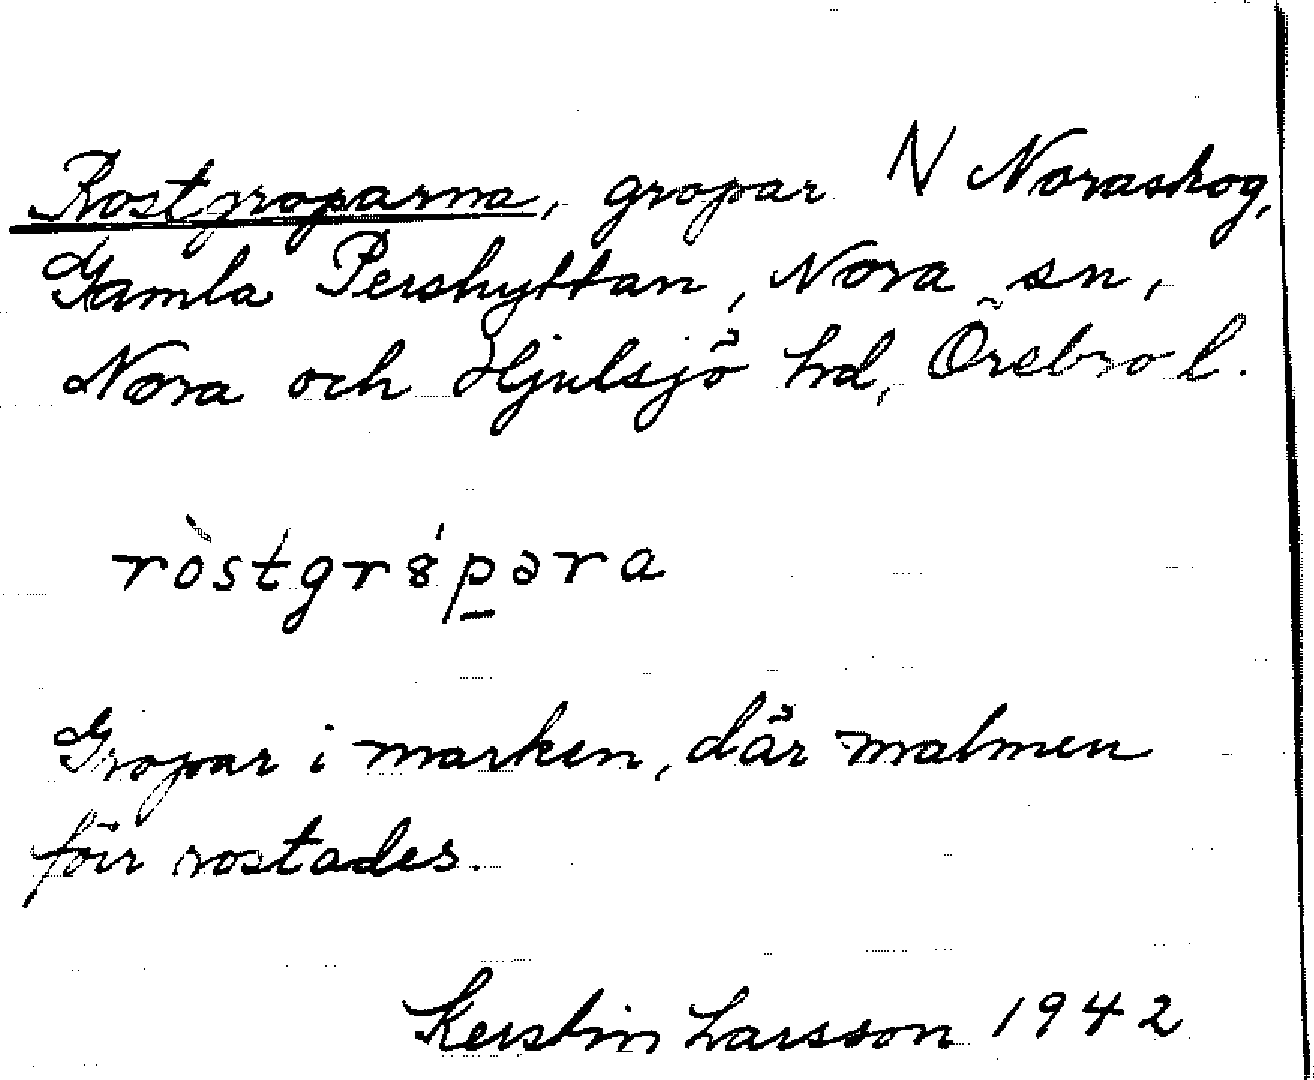 Rostgroparna, gropar N Noraskog,
Gamla Pershyttan, Nora sn,
Nora och Hjulsjö hd, Örebro l.
ròstgrópəra
Gropar i marken, där malmen
förr rostades.
Kerstin Larsson 1942